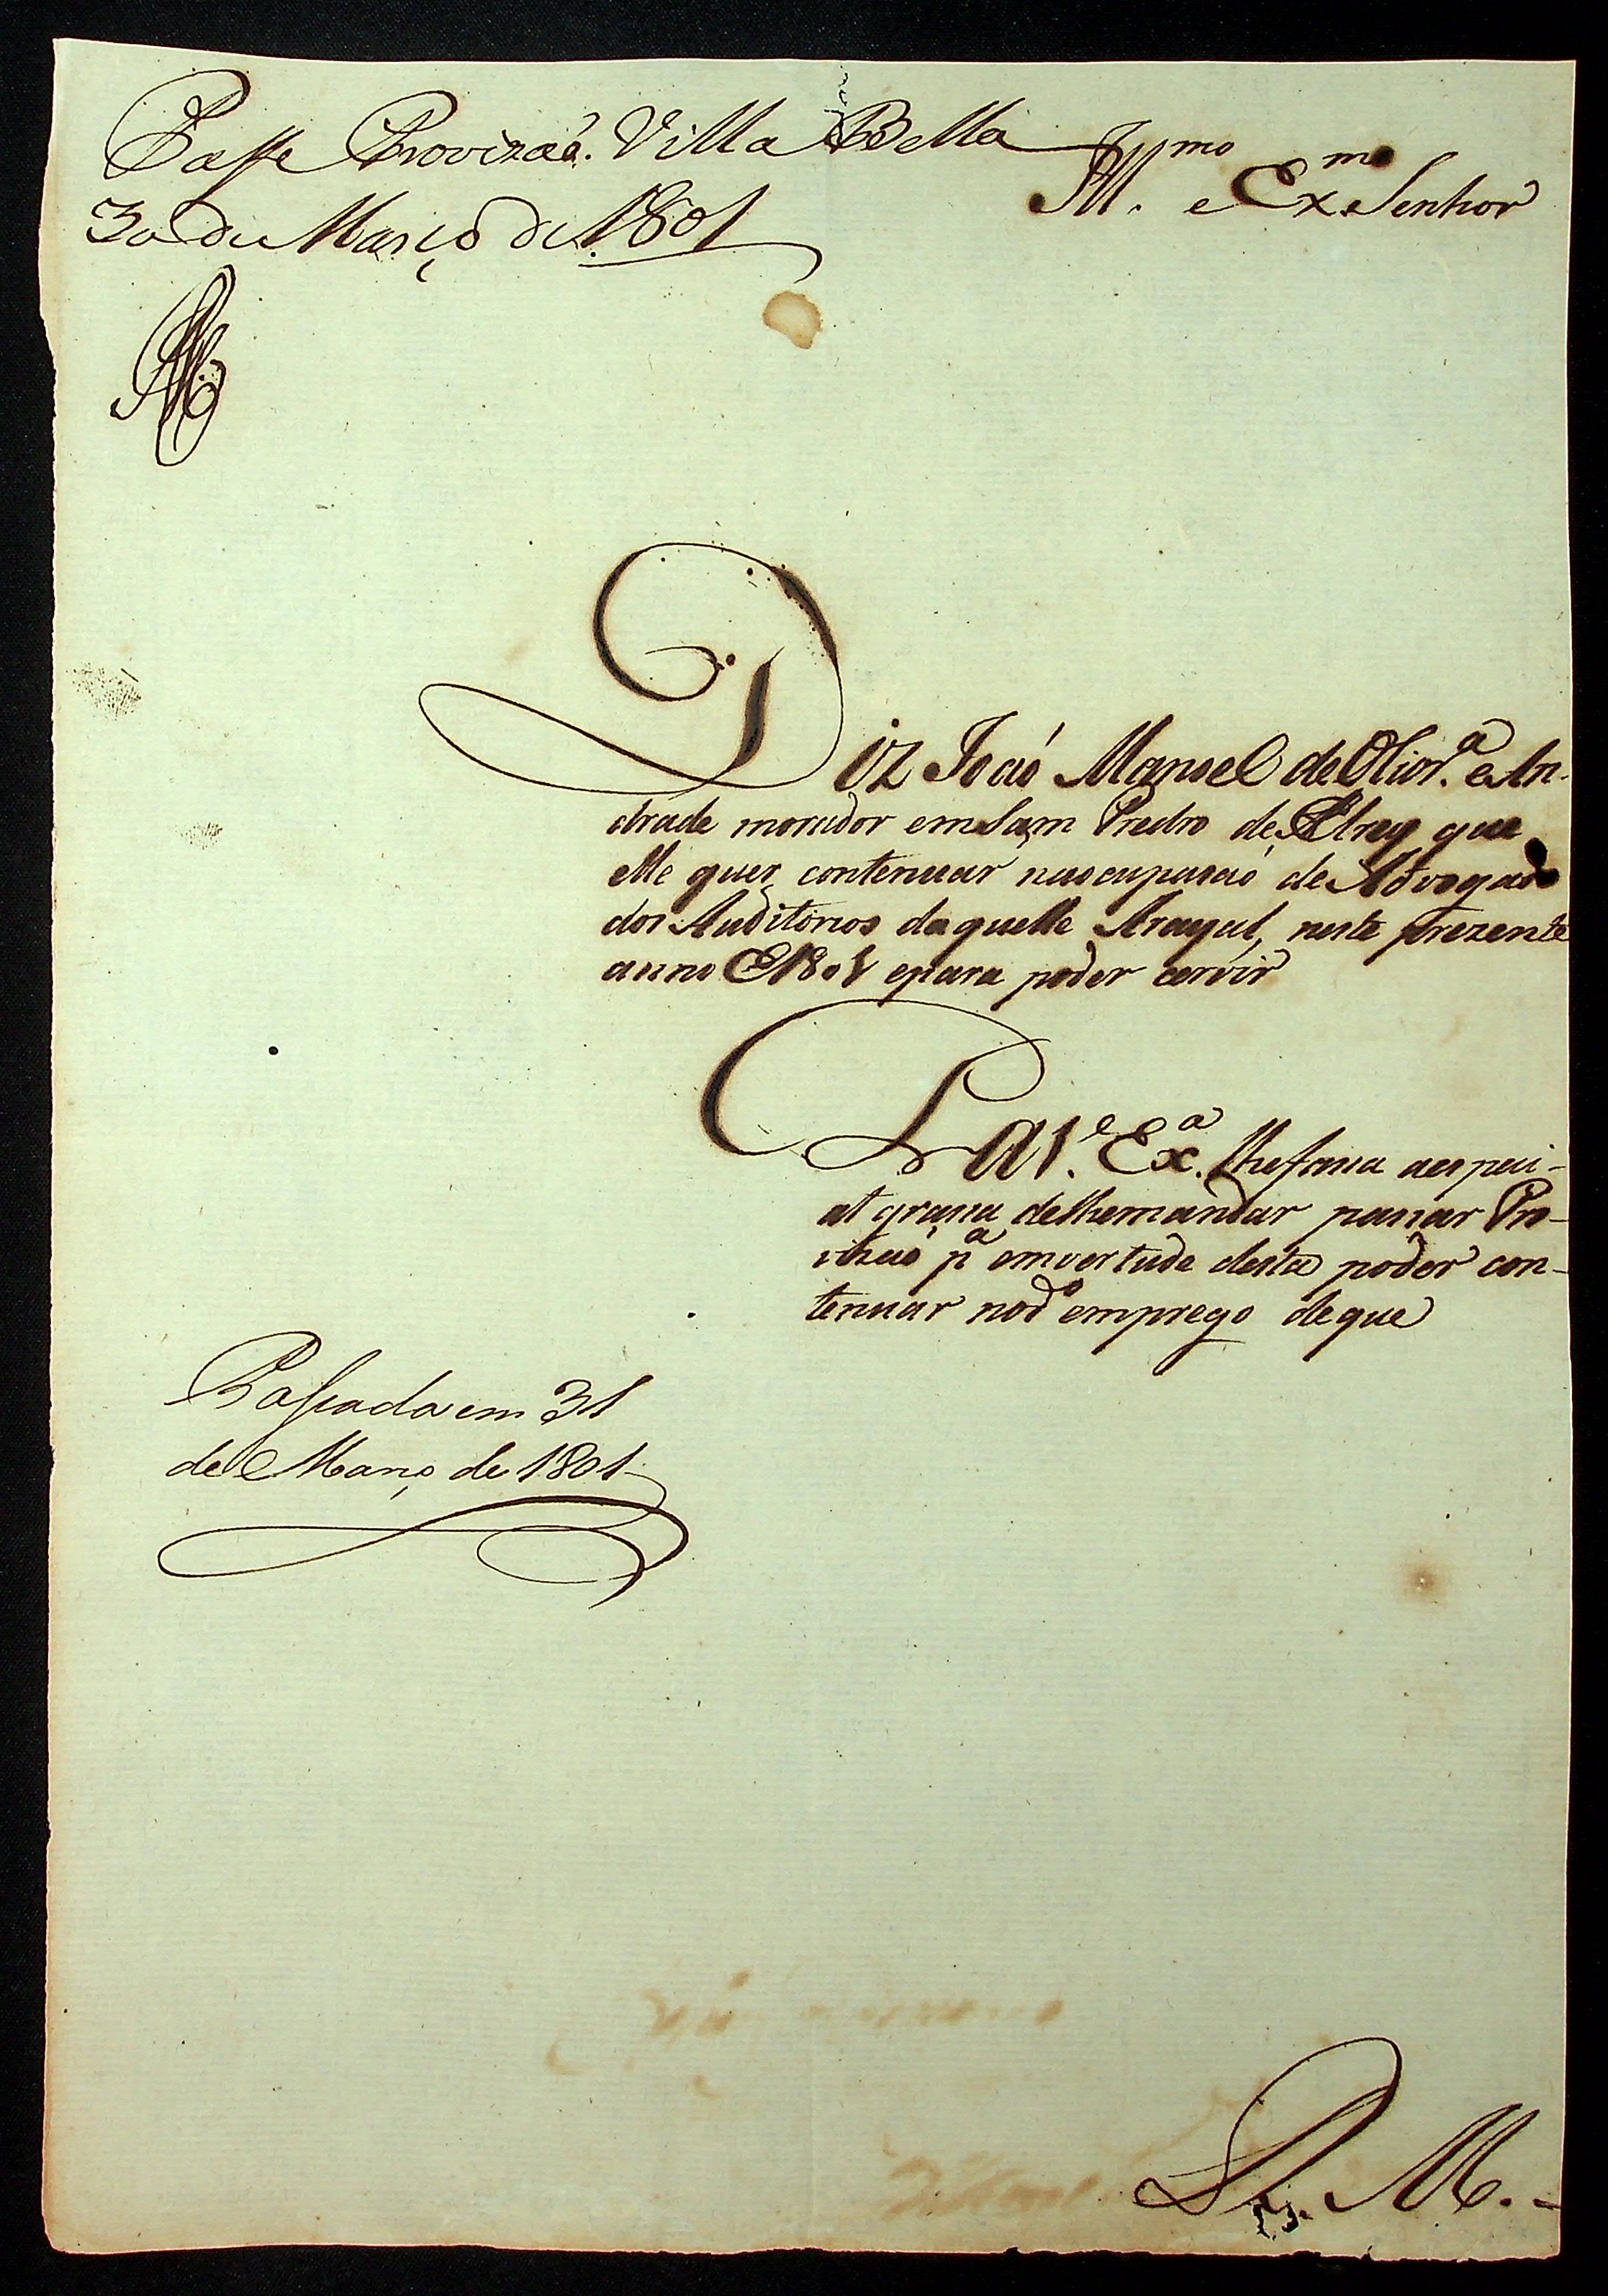 Passe Provizaõ. Villa Bella
30 de Março de 1801
Jll.mo e Ex.mo Senhor
Diz Joaõ Manoel de Olivr.a e An-
drade morador em Sam Predro de Elrey que
elle quer contenuar naocupasaõ de Advogado
dos Auditorios daquelle Arayal, neste prezente
anno E1801 epara poder cervir
P. a V.e Ex.a lhefassa aespeci-
al grassa delhemandar passar Pro-
vizaõ p.a emvertude desta poder con-
tenuar nod.o emprego deque
Passada em 31
de Março de 1801
R. M.